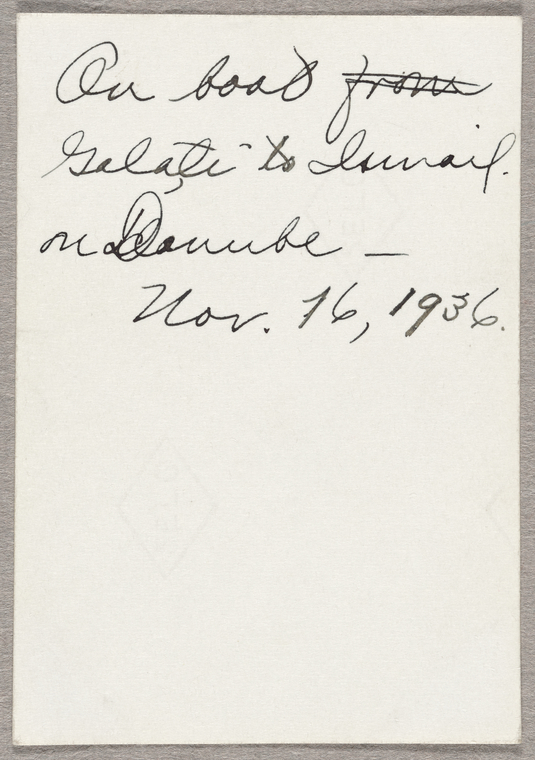 On boat from
Galați to Ismail.
on Danube –
Nov. 16, 1936.